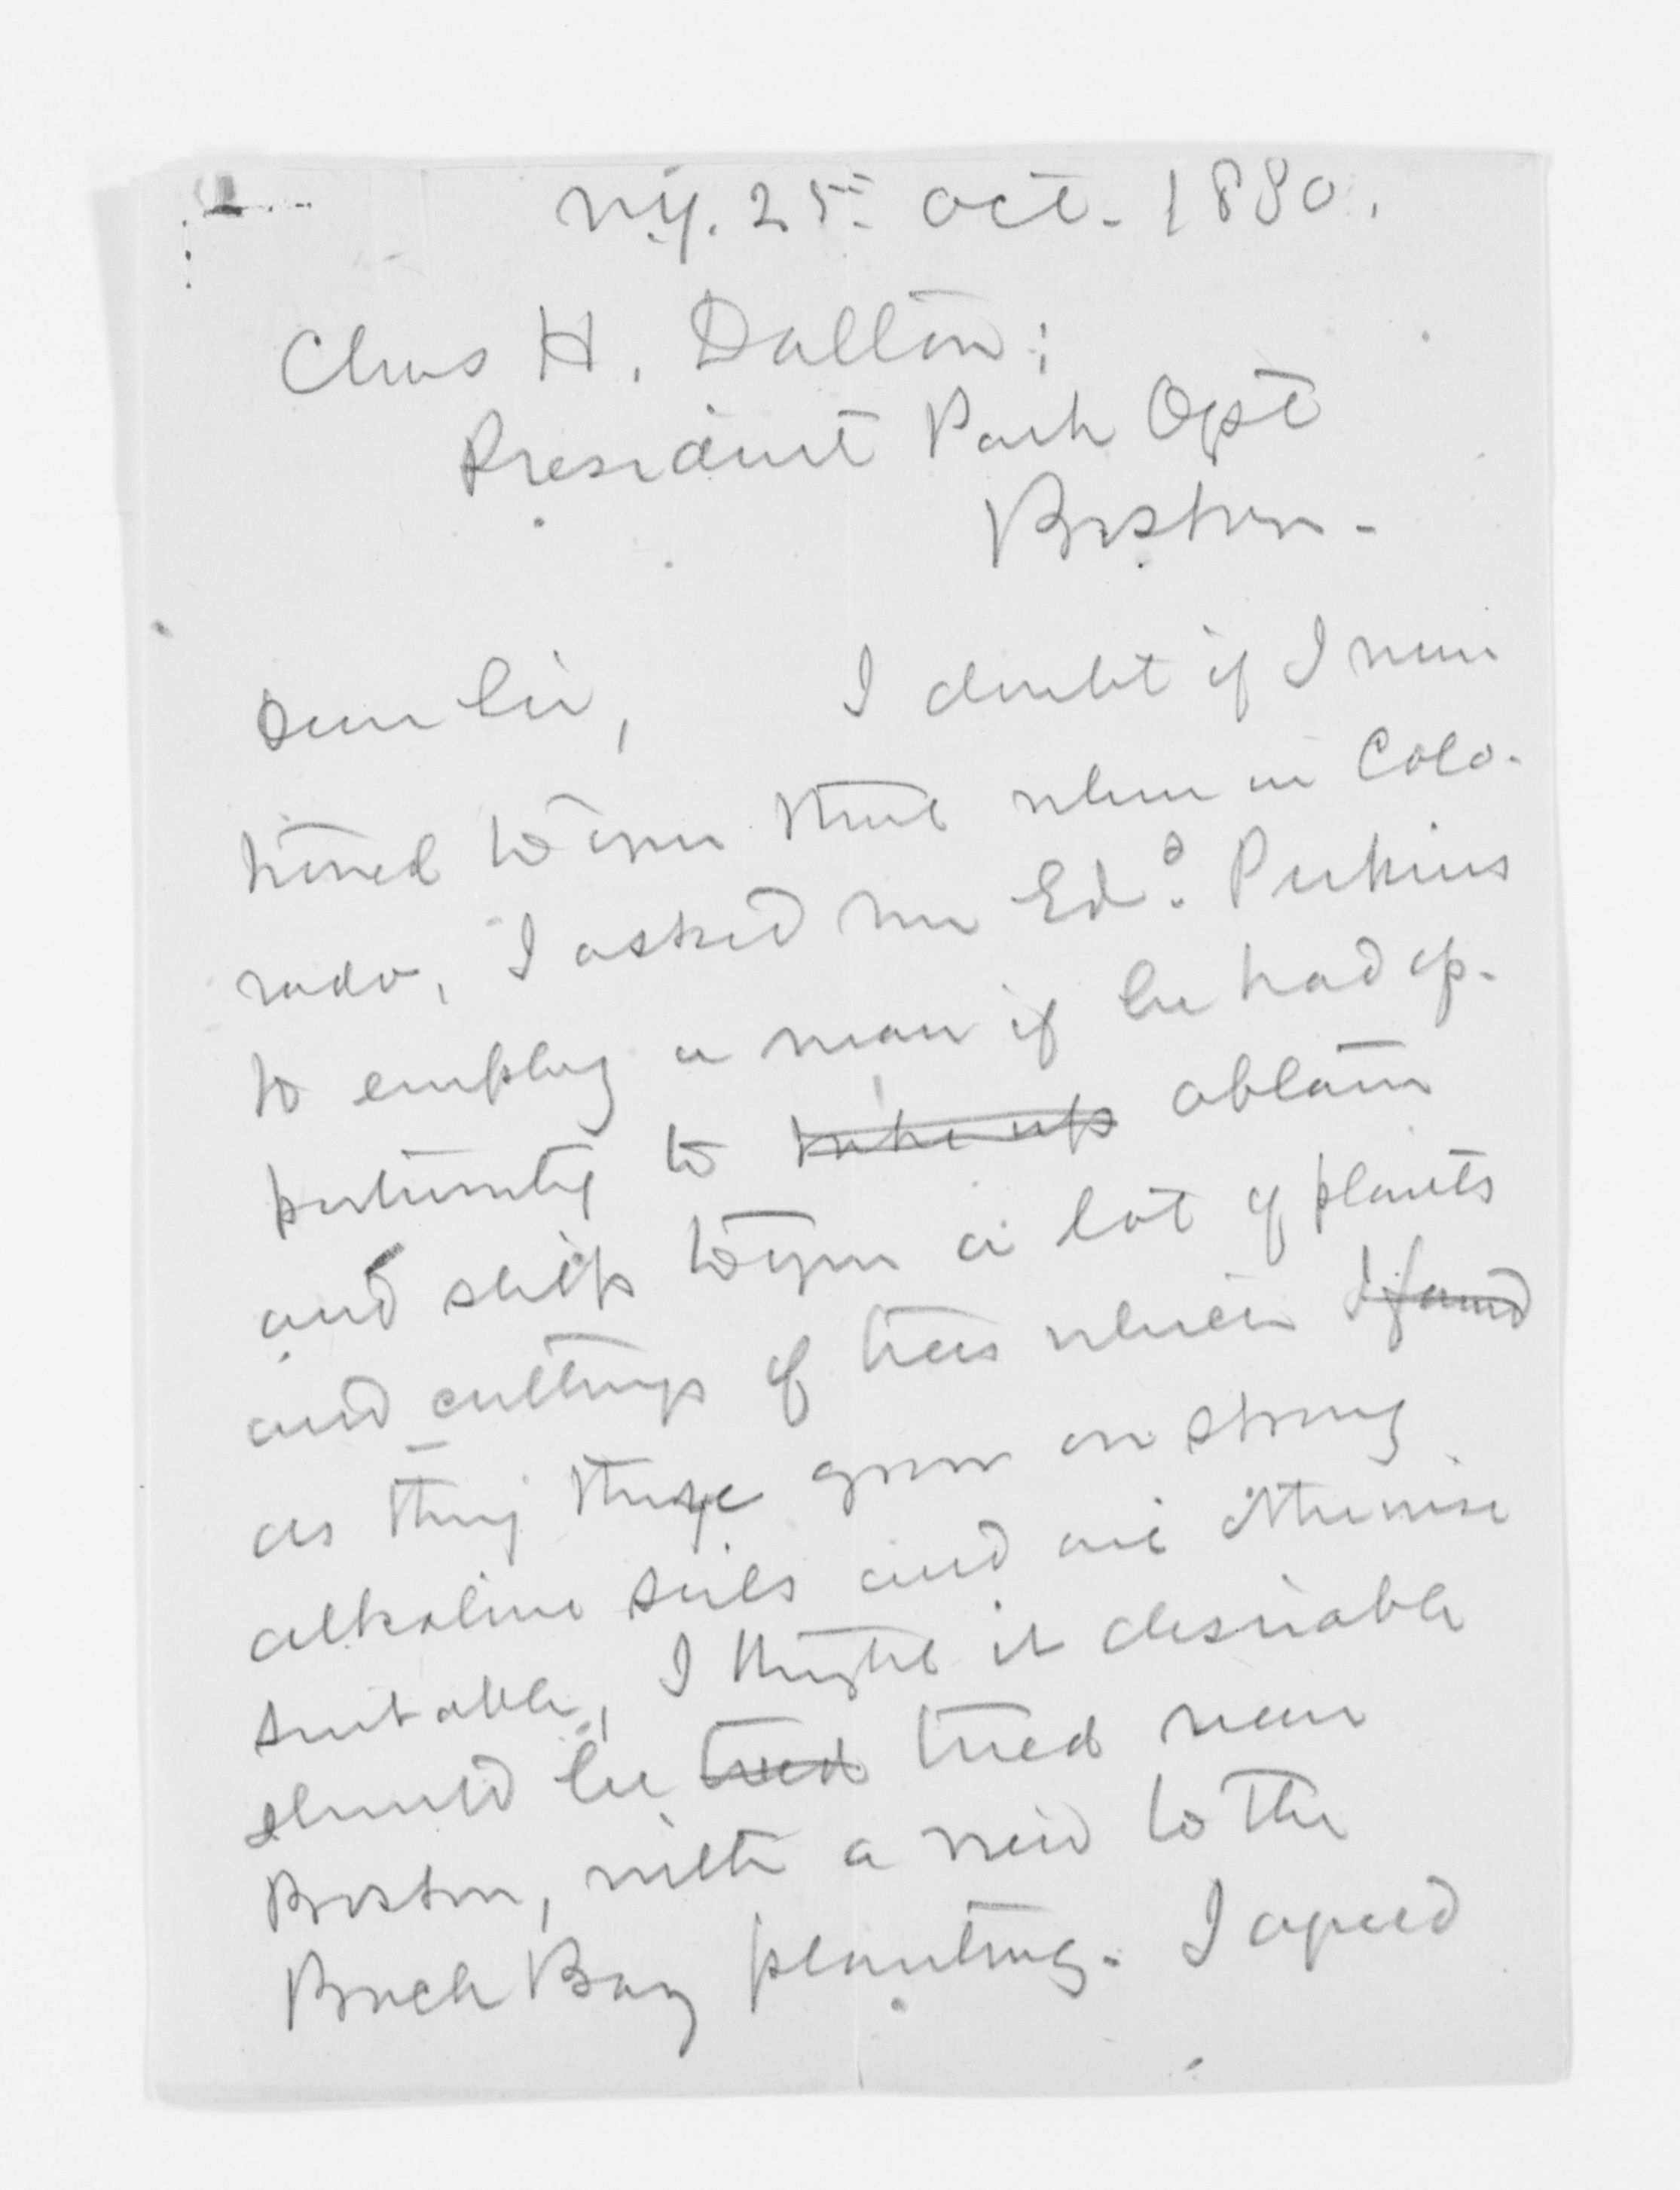 N.Y. 25th Oct. 1880.
Chas H. Dalton;
President Park Dpt
Boston.
Dear Sir, I doubt if I men
tioned to you that when in Colo-
rado, I asked Mr Edd. Perkins
to employ a man if he had op-
portunity to take up obtain
and ship to you a lot of plants
and cuttings of trees which I found
as they there grow on strong
alkaline soils and are otherwise
suitable, I thought it desirable
should be tried tried near
Boston, with a view to the
Back Bay planting. I agreed